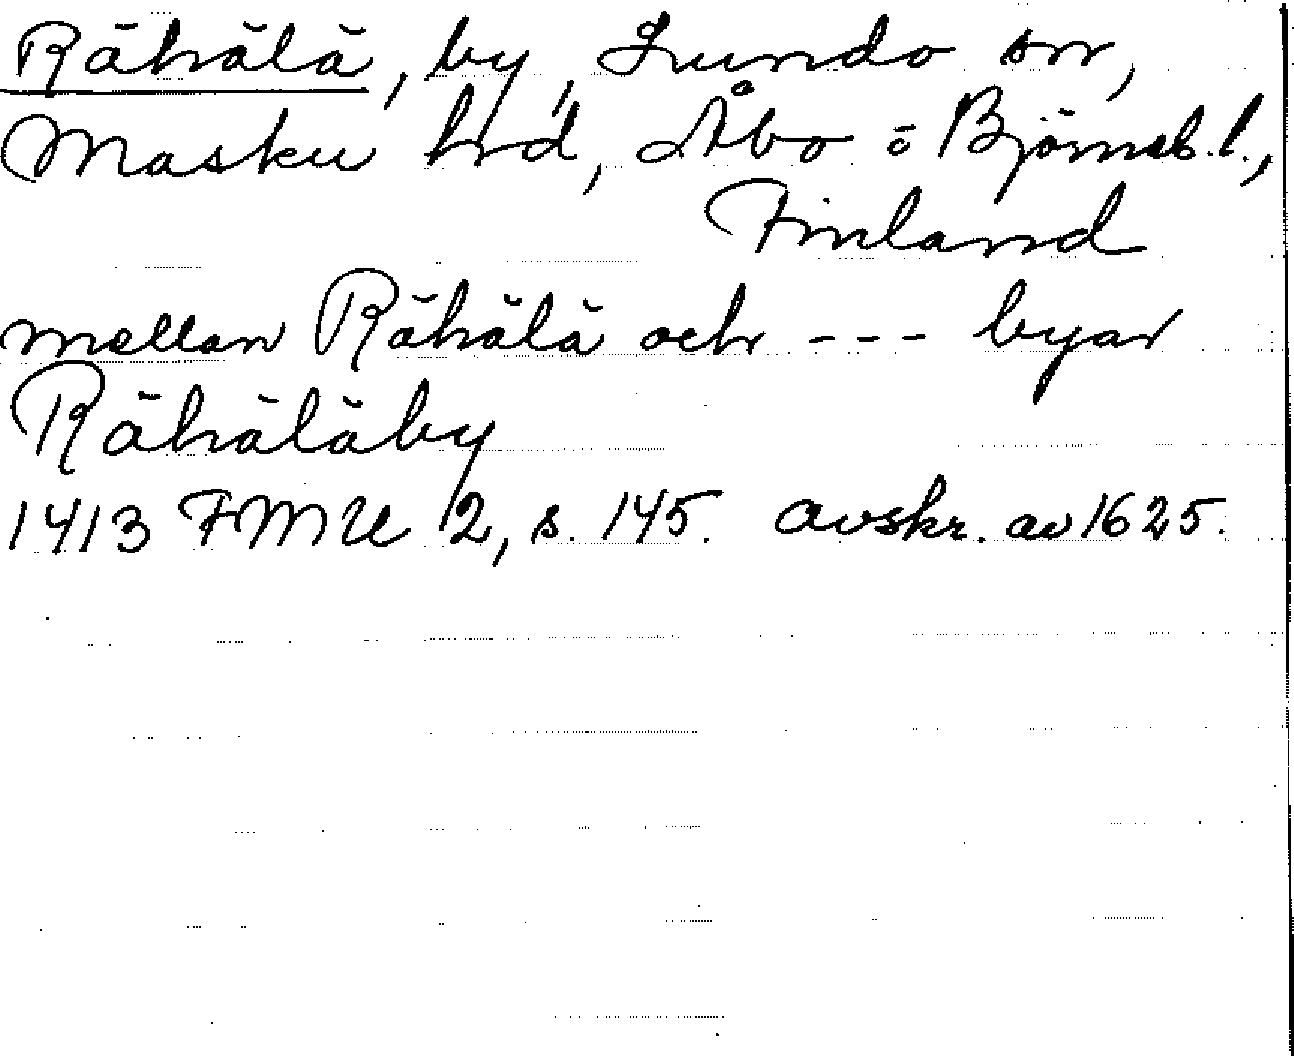 Rähälä, by, Lundo sn,
Masku hd, Åbo o Björneb. l.,
Finland
mellan Rähälä och --- byar
Rähäläby
1413 FMU 2, s. 145. avskr. av 1625.